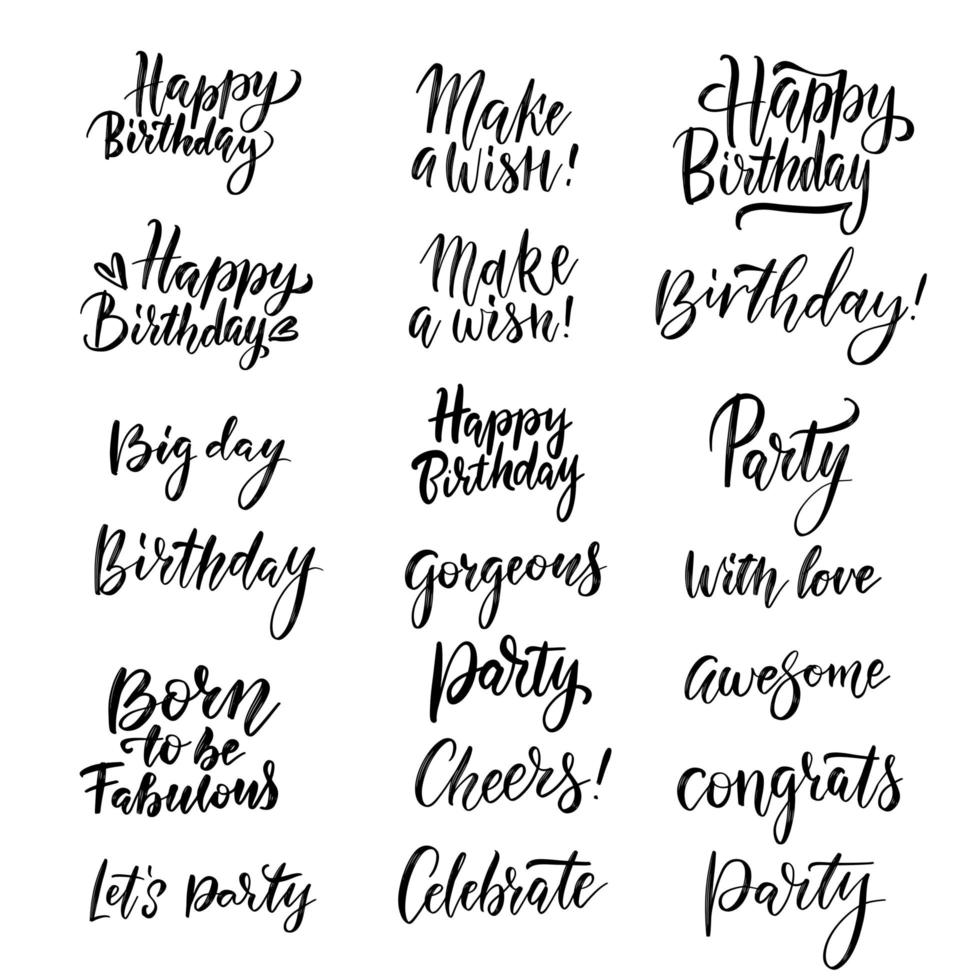 Happy
Birthday
Make
a wish!
Happy
Birthday
Happy
Birthday
Make
a wish!
Birthday!
Big day
Happy
Birthday
Party
Birthday
Gorgeous
With love
Born
to be
Fabulous
Party
awesome
Cheers!
congrats
Let's party
Celebrate
Party